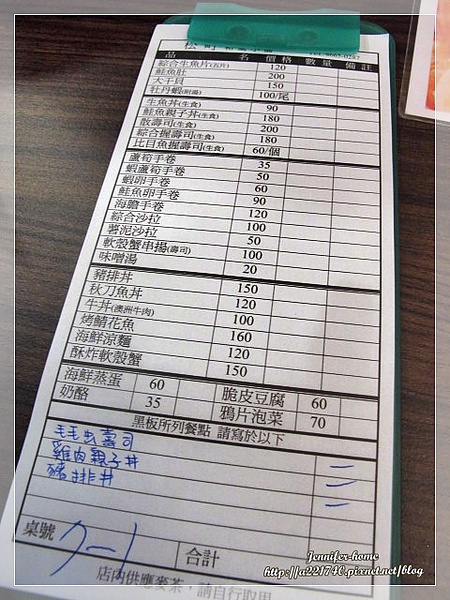 松町
品名 價格 數量 備註
綜合生魚片 120
鮭魚肚 200
大干貝 150
牡丹蝦 100/尾
生魚丼(生食) 90
鮭魚親子丼(生食) 180
散壽司(生食) 200
綜合握壽司(生食) 180
比目魚握壽司(生食) 60/個
蘆筍手卷 35
蝦蘆筍手卷 50
蝦卵手卷 60
鮭魚卵手卷 90
海膽手卷 120
綜合沙拉 100
薯泥沙拉 50
軟殼蟹串揚(壽司) 100
味噌湯 20
豬排丼 150
秋刀魚丼 120
牛丼(澳洲牛肉) 100
烤鯖花魚 160
海鮮涼麵 120
酥炸軟殼蟹 150
海鮮蒸蛋 60 脆皮豆腐 60
奶酪 35 鴉片泡菜 70
黑板所列餐點 請寫於以下
毛毛虫壽司 一
雞肉親子丼 二
豬排丼 一
桌號 7-1 合計
店內供應麥茶，請自行取用
Jennifer-home
http://a221740.pixnet.net/blog